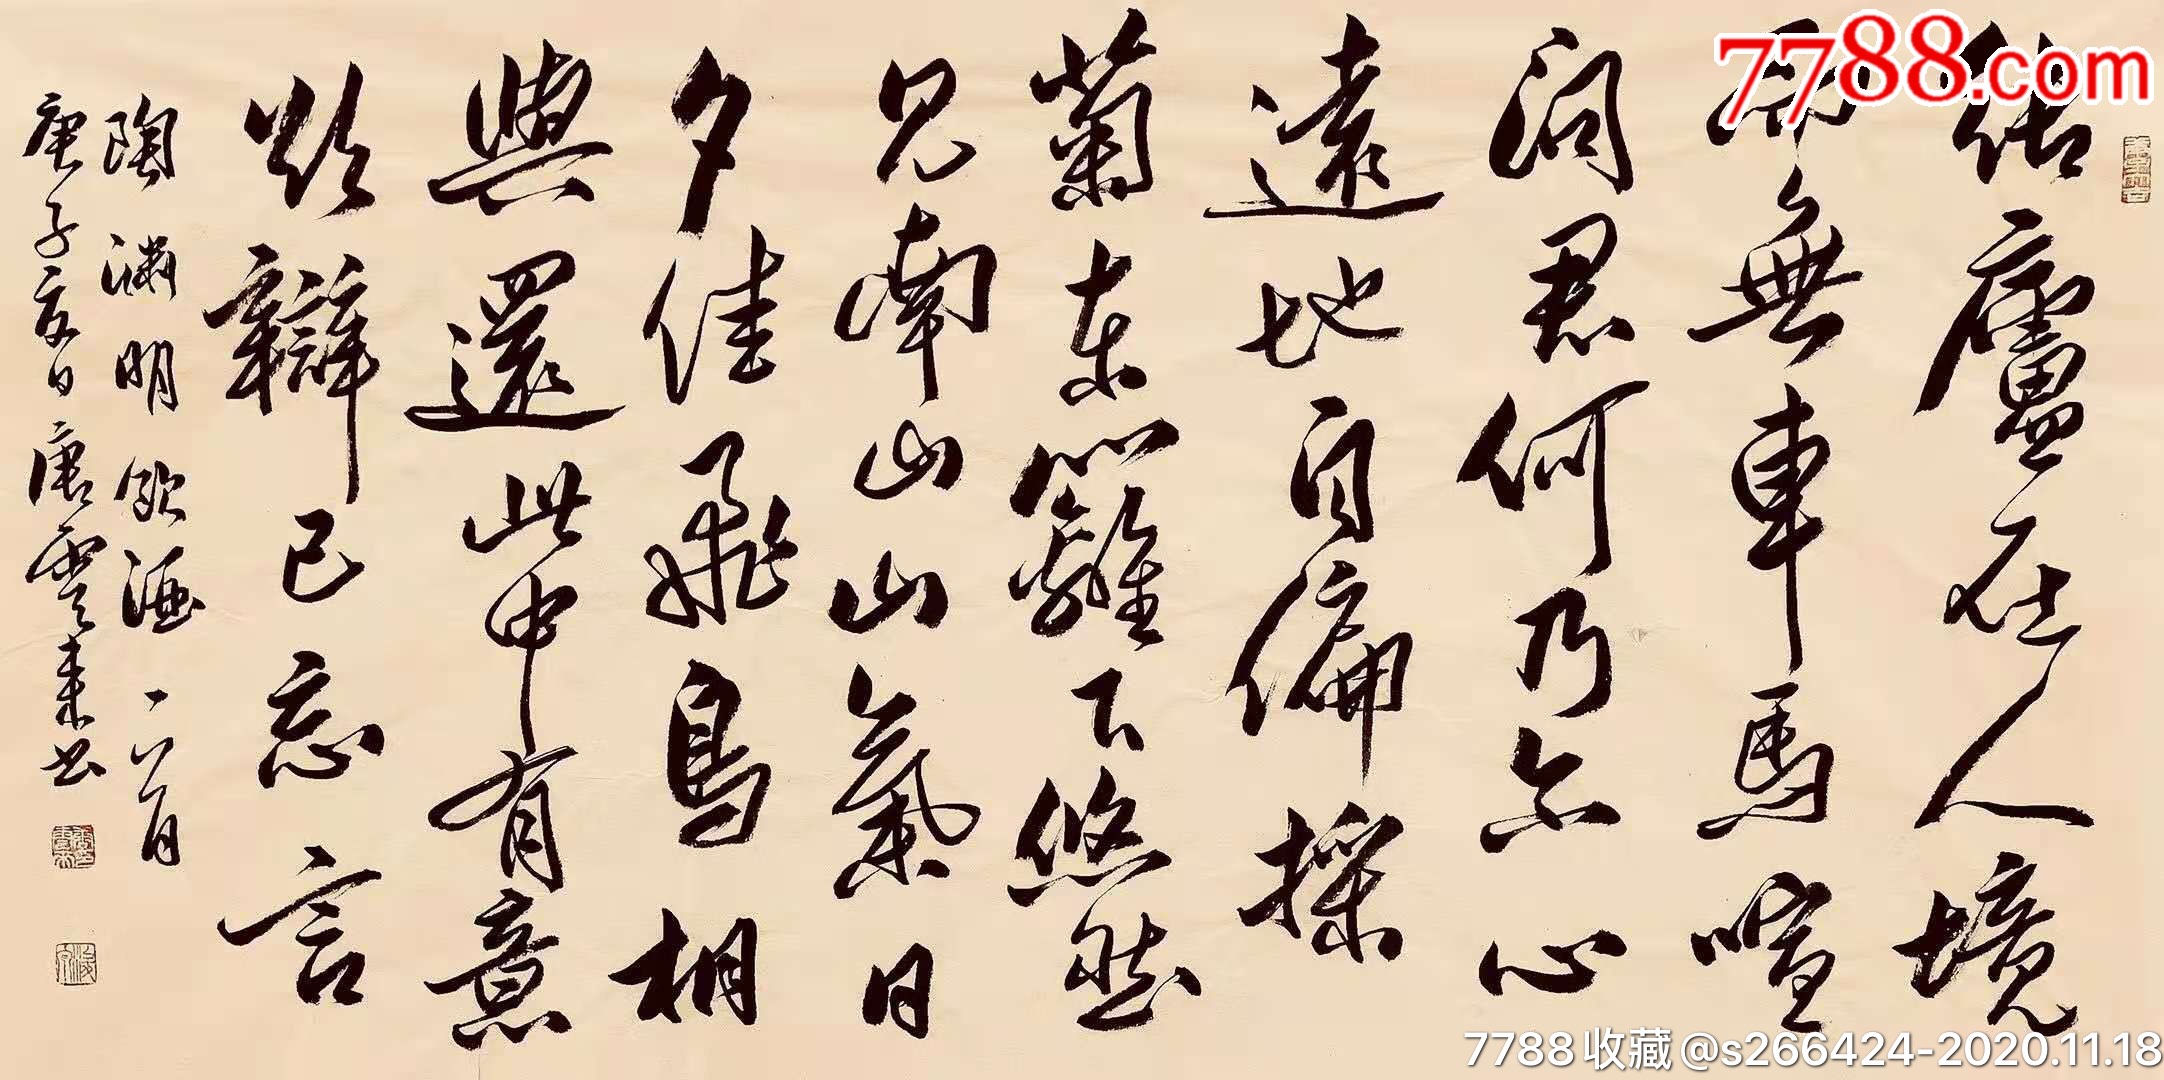 7788.com
結廬在人境
而無車馬喧
问君何乃尔心
遠地自偏採
菊东籬下悠然
见南山山氣日
夕佳飛鳥相
與還此中有意
欲辯已忘言
陶渊明飲酒一首
庚子夏日唐雲来书
7788收藏@s266424-2020.11.18